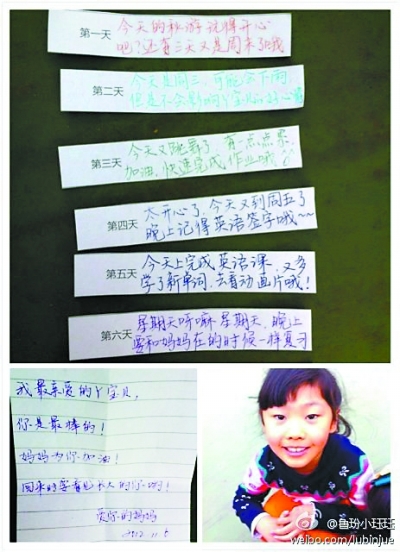 第一天
今天的秋游玩得开心
吧?还有三天又是周末了哦
第二天
今天是周三,可能会下雨,
但是不会影响丫宝贝的心情
第三天
今天又跳舞了 有一点点累
加油、快速完成作业哦!
第四天
太开心了,今天又到周五了
晚上记得英语签字哦~~
第五天
今天上完成英语课,又多
学了新单词,去看动画片哦!
第六天
星期天呼嘛星期天、晚上
要和妈妈在的时候一样复习
我最亲爱的丫宝贝,
你是最棒的!
妈妈为你加油!
回来时要看见长大的你哟!
爱你的妈妈
2012.11.5
@鲁玢小珏珏
weibo.com/lubinjue